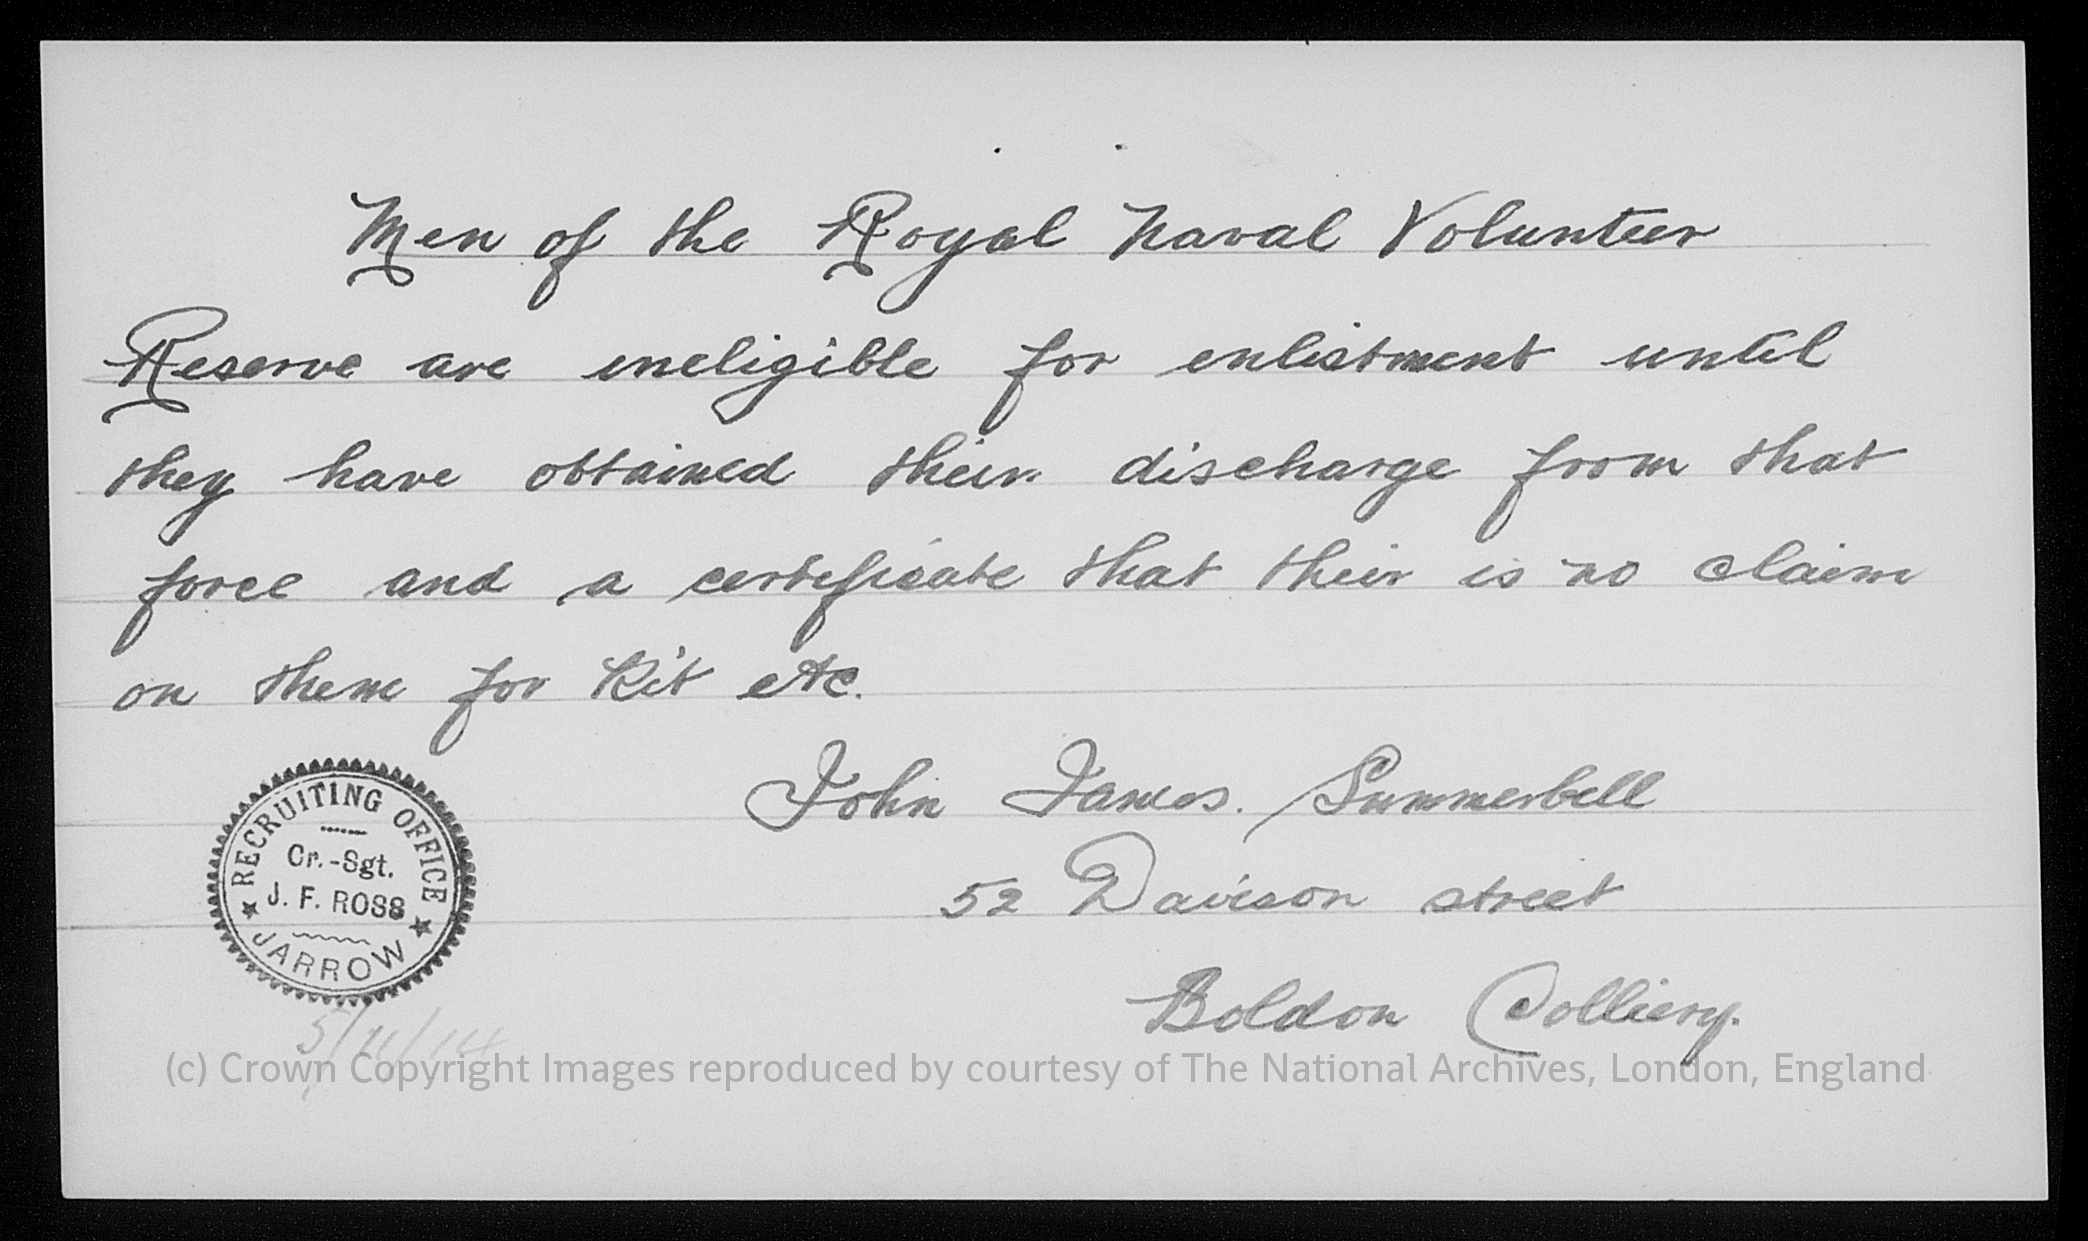 Men of the Royal Naval Volunteer
Reserve are ineligible for enlistment until
they have obtained their discharge from that
force and a certificate that their is no claim
on them for Kit etc.
John James. Summerbell
52 Davison street
Boldon Colliery.
RECRUITING OFFICE
Cr.-Sgt.
J. F. ROSS
JARROW
5/11/14
(c) Crown Copyright Images reproduced by courtesy of The National Archives, London, England